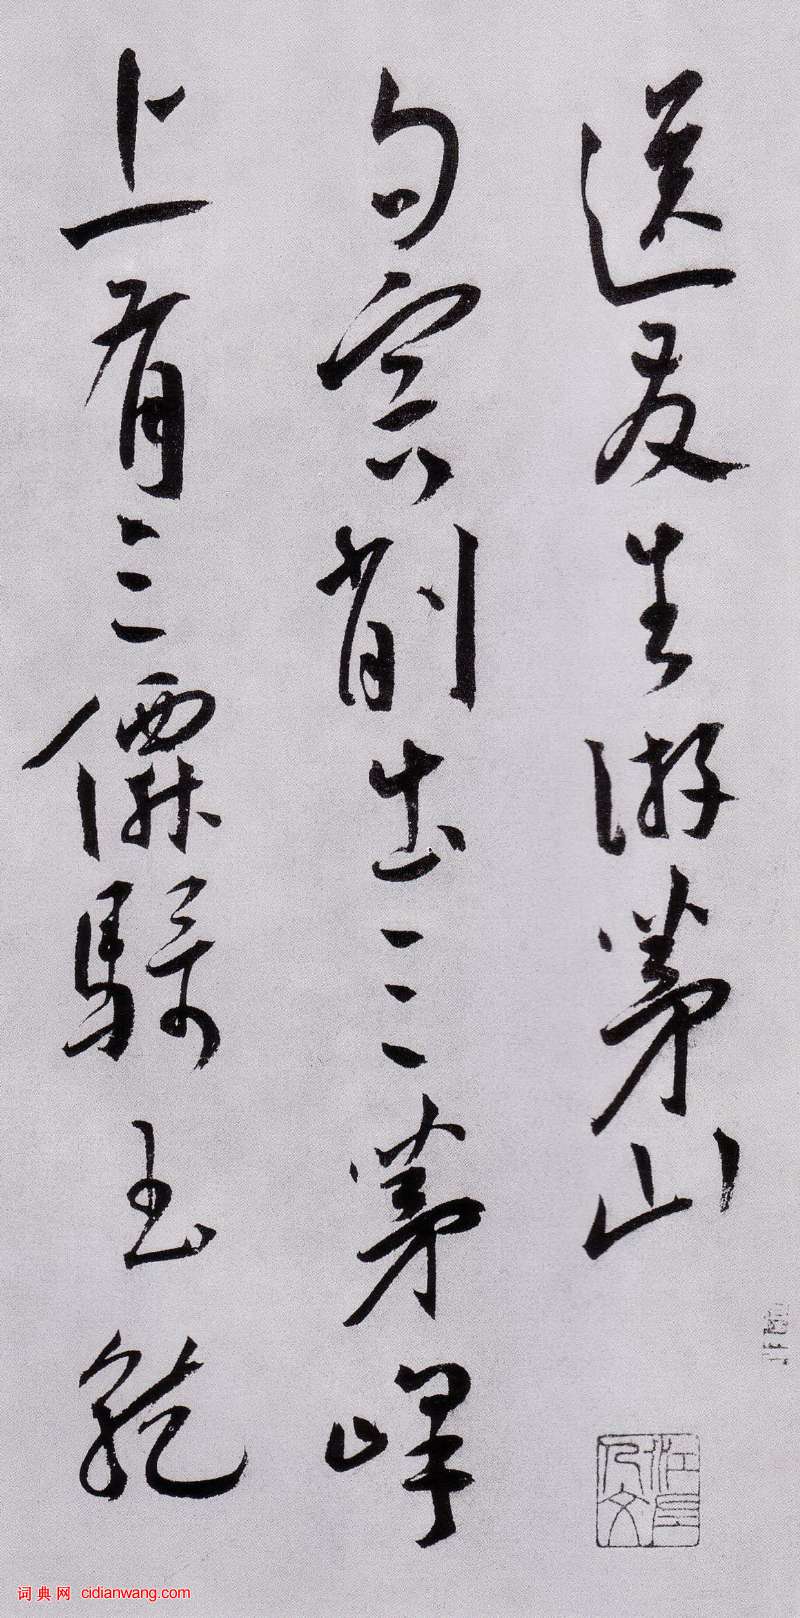 送友生游茅山
句容削出三茅峰
上有三僊騎玉龍
词典网 cidianwang.com